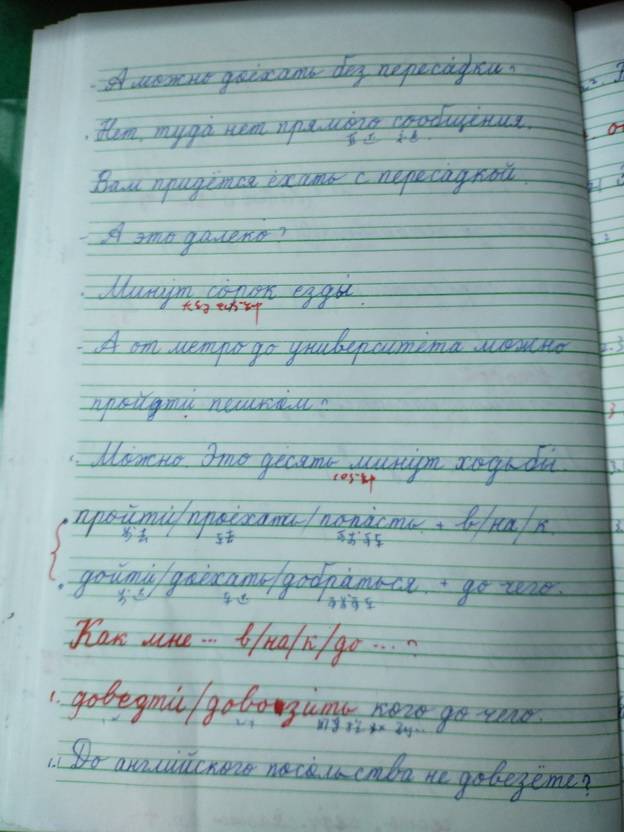 - А можно дое́хать без переса́дки?
. Нет, туда́ нет прямо́го сообще́ния.
Вам придётся е́хать с переса́дкой.
- А это далеко́?
. Мину́т со́рок езды́.
- А от метро до университе́та можно
пройдти́ пешко́м?
Мо́жно. Это де́сять мину́т ходьбы́.
пройти́/прое́хать/попа́сть + в/на/к.
дойти́/дое́хать/добра́ться + до чего.
Как мне ... в/на/к/до ...?
доведти́/довози́ть кого до чего.
До англи́йского посо́льства не довезёте?